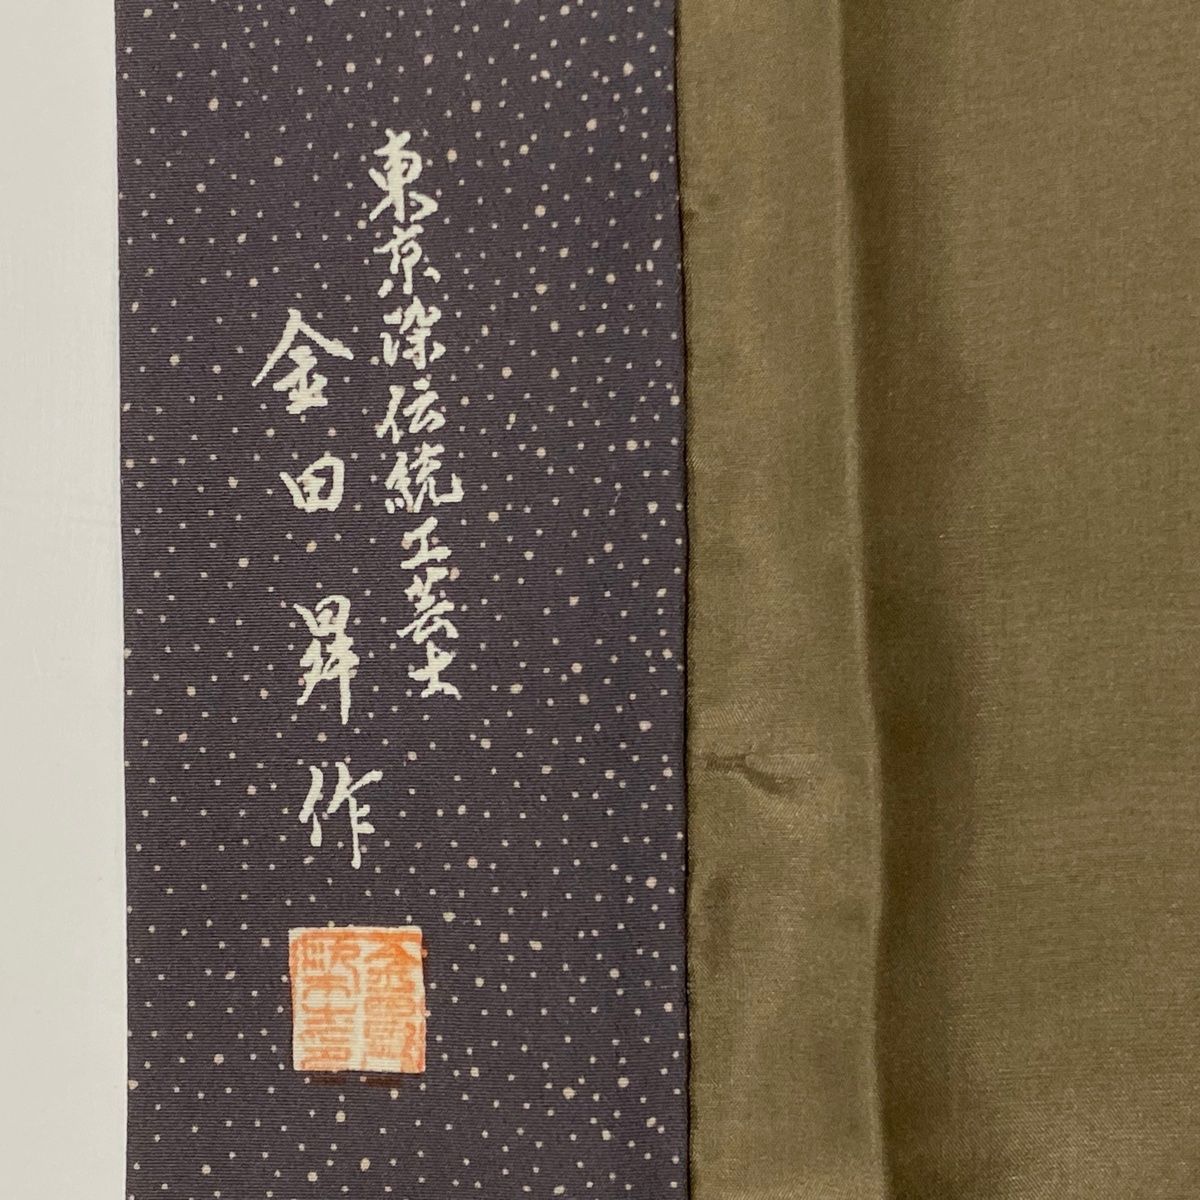 東京染伝統工芸士
金田昇作